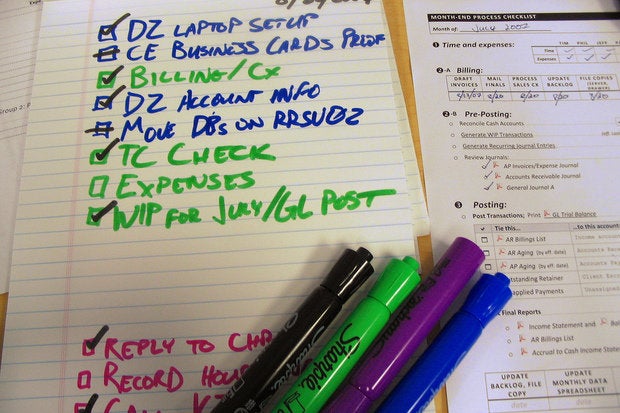 DZ LAPTOP SETUP
CE BUSINESS CARDS PROOF
BILLING/CX
DZ ACCOUNT INFO
MOVE DBS ON RRSVD2
TC CHECK
EXPENSES
WIP FOR JULY/GL POST
REPLY TO
RECORD
CALL
Sharpie
MONTH-END PROCESS CHECKLIST
Month of: July 2002
1 Time and expenses:
TIM PHIL JEFF
Time
Expenses
2-A Billing:
DRAFT INVOICES MAIL FINALS PROCESS SALES CX UPDATE BACKLOG FILE COPIES (SERVER, DRAWER)
8/20 8/20 8/20
2-B Pre-Posting:
Reconcile Cash Accounts
Generate WIP Transactions
Generate Recurring Journal Entries
Review Journals:
AP Invoices/Expense Journal
Accounts Receivable Journal
General Journal A
3 Posting:
Post Transactions; Print GL Trial Balance
Tie this... ...to this
AR Billings List
AR Aging (by eff. date)
AP Aging (by eff. date)
Outstanding Retainer
Payments
Final Reports
Income Statement and
AR Billings List
Accrual to Cash Income
UPDATE BACKLOG, FILE COPY UPDATE MONTHLY DATA SPREADSHEET
date